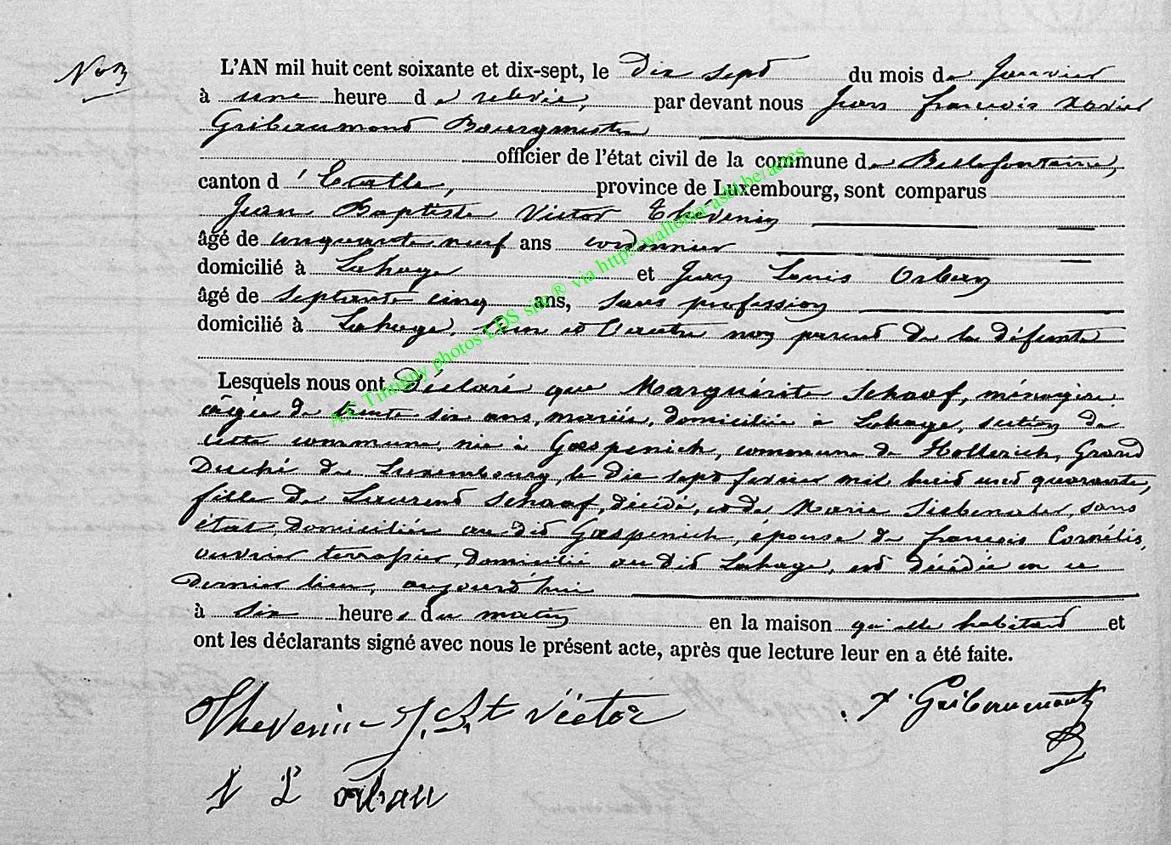 No 3
L'AN mil huit cent soixante et dix-sept, le dix sept du mois de Janvier
à une heure d e relevée, par devant nous Jean François Xavier
Gribaumont Bourgmestre
officier de l'état civil de la commune de Bellefontaine,
canton d 'Etalle, province de Luxembourg, sont comparus
Jean Baptiste Victor Thévenin
âgé de cinquante neuf ans cordonnier
domicilié à Lahage et Jean Louis Orban
âgé de septante cinq ans, sans profession
domicilié à Lahage, l'un et l'autre non parent de la défunte
Lesquels nous ont Déclaré que Marguérite Schaaf, ménagère
âgée de trente six ans, mariée, domiciliée à Lahage, section de
cette commune, née à Gaspenich, commune de Hollerich, Grand
Duché de Luxembourg, le dix sept février mil huit cent quarante,
fille de Laurent Schaaf, décédé, et de Marie Siebenaler, sans
état, domiciliée au dit Gaspenich, épouse de François Cornélis,
ouvrier terrassier, domicilié au dit Lahage, est décédée en ce
dernier lieu, aujourd'hui
à six heures du matin en la maison qu'elle habitait et
ont les déclarants signé avec nous le présent acte, après que lecture leur en a été faite.
Thevenin J. Bte Victor X Gribaumont
J L orban
A.E. Timonny photos LDS site ® via http://wallonia-asbl.be/actes